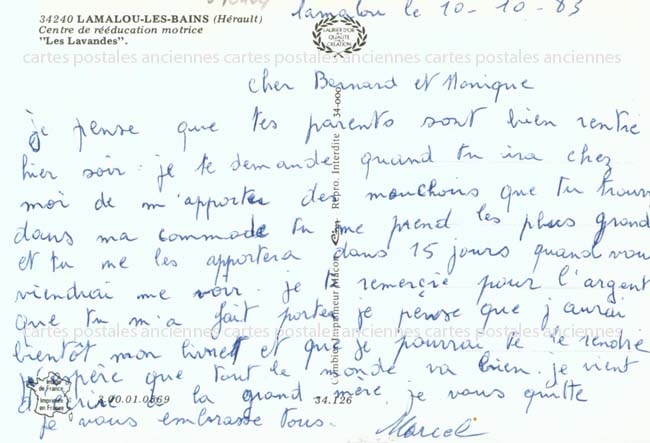 Lamalou le 10-10-83
34240 LAMALOU-LES-BAINS (Hérault)
Centre de rééducation motrice
"Les Lavandes".
LAURIER D'OR
QUALITÉ
CRÉATION
cartes postales anciennes cartes postales anciennes cartes postales anciennes
cher Bernard et Monique
je pense que tes parents sont bien rentre
hier soir. je te demande quand tu ira chez
moi de m'apporter des mouchoirs que tu trouv
dans ma commode tu me prend les plus grand
et tu me les apportera dans 15 jours quand vou
viendrai me voir. je te remerçie pour l'argent
que tu m'a fait porter je pense que j'aurai
cartes postales anciennes cartes postales anciennes cartes postales anciennes
bientôt mon livret et que je pourrai te le rendre
j'espère que tout le monde va bien. je vient
d'écrire a la grand mère. je vous quitte
je vous embrasse tous. Marcel
Image
de France
Imprimée
en France
3.00.01.0869
34.126
Combier Imprimeur Mâcon
Repro. Interdite
34-000